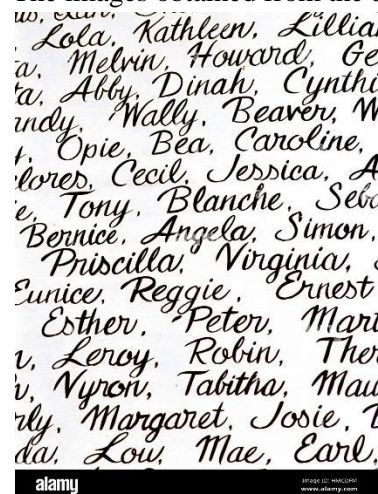 The images obtained from the
Lola, Kathleen, Lillia
a, Melvin, Howard, Ge
ta, Abby, Dinah, Cynthi
andy, Wally, Beaver, W
y, Opie, Bea, Caroline,
lores, Cecil, Jessica, A
e, Tony, Blanche, Seba
Bernice, Angela, Simon,
Priscilla, Virginia,
Eunice, Reggie, Ernest
Esther, Peter, Mart
n, Leroy, Robin, Ther
h, Nyron, Tabitha, Mau
rly, Margaret, Josie,
da, Lou, Mae, Earl,
alamy
Image ID: HMCDFM
www.alamy.com